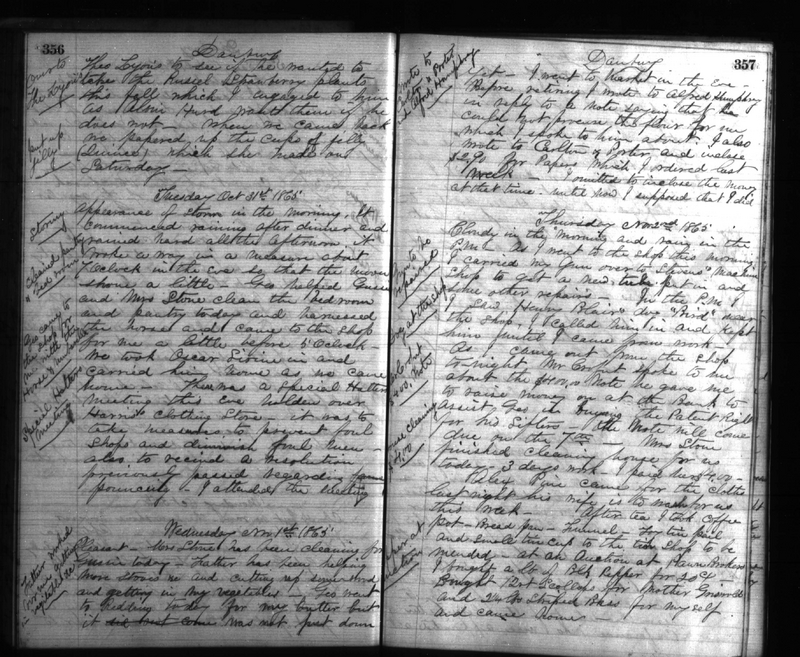 356
Danbury
Theo Lyon's to see if he wanted to
take the Russel Strawberry plants
this fall which I engaged to him
as Alvin Hurd wants them if he
does not - When we came back
we papered up the cups of jelly
(Quince) which she made on
Saturday -
Tuesday Oct 31st 1865
Appearance of storm in the morning. It
commenced raining after dinner and
rained hard all the afternoon. It
broke away in a measure about
7 o'clock in the eve so that the moon
shone a little - Geo helped Gussie
and Mrs Stone clean the bedroom
and pantry today and harnessed
the horse and came to the shop
for me a little before 5 o'clock
We took Oscar in and
carried him home as we came
home - There was a special Hatters
meeting this Eve holden over
Harris' Clothing Store - it was to
take measures to prevent foul
shops and diminish foul men -
also to recind a resolution
previously passed regarding
pouncing - I attended the meeting
Wednesday Nov 1st 1865
Pleasant - Mrs Stone has been cleaning for
Gussie today - Father has been helping
move stoves &c and cutting up some wood
and getting in my vegetables - Geo went
to Redding today for my butter but
it was not put down
stormy
Special Hatters
Meeting
357
Danbury
yet - I went to Market in the Eve -
Before retiring I wrote to Alfred Humphrey
in reply to a note saying that he
could not procure the flour for me
which I spoke to him about. I also
wrote to Carlton & Porter and inclose
$2.90 for Papers which I ordered last
Week - I omitted to inclose the money
at that time. until now I supposed that I did
Thursday Nov 2nd 1865
Cloudy in the morning and rain in the
P.M. As I went to the shop this morning
I carried my gun over to Stevens' Machine
Shop to get a new tube put in and
some other repairs - In the P.M. I
saw Henry Blair's dog "Bird" near
the shop. I called him in and kept
him until I came from work -
As I came out from the shop
to-night Mr spoke to me
about the $400.00 Note he gave me
to raise money on at the Bank to
assist Geo in buying the Patent Right
for his Sifters - The Note will come
due on the 7th - Mrs Stone
finished cleaning house for us
today - 3 days work I paid her $4.00 -
Alex came for the clothes
last night his wife is to wash for us
this week - After tea I took Coffee
pot - Bread pan - Tunnel - Tin pail
and small tin cup to the tin shop to be
mended - at an Auction at Pawn Brokers
I bought a lb of Blk Pepper for 20 cts
Bought 12 ct Scollops for Mother Griswold
and 24 yds Striped for myself
and came home -
wrote to
Carlton & Porter
& Alfred Humphrey
Gun to be
repaired
house cleaning
$4.00